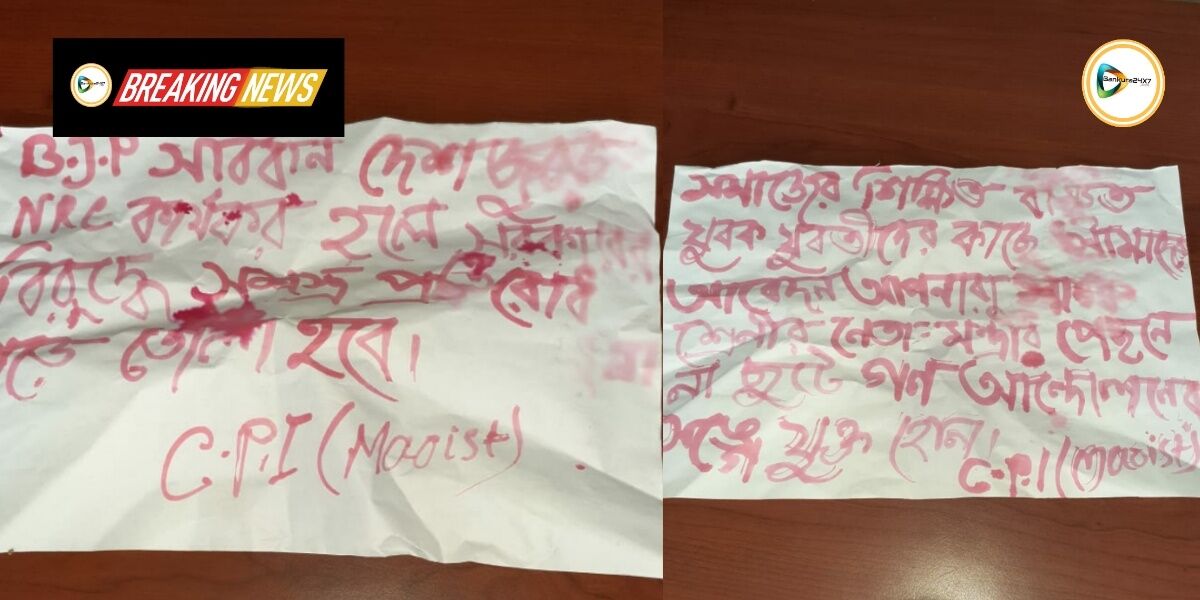 Bankura24X7
BREAKING NEWS
B.J.P সাবধান দেশ জুরে
NRC কার্যকর হলে সরকারের
বিরুদ্ধে সশস্ত্র প্রতিরোধ
গড়ে তোলা হবে।
C.P.I (Maoist)
সমাজের শিক্ষিত
যুবক যুবতীদের কাছে আমাদের
আবেদন আপনারা শাসক
শ্রেণীর নেতা মন্ত্রীর পেছনে
না ছুটে গণ আন্দোলনের
সঙ্গে যুক্ত হোন।
C.P.I (Maoist)